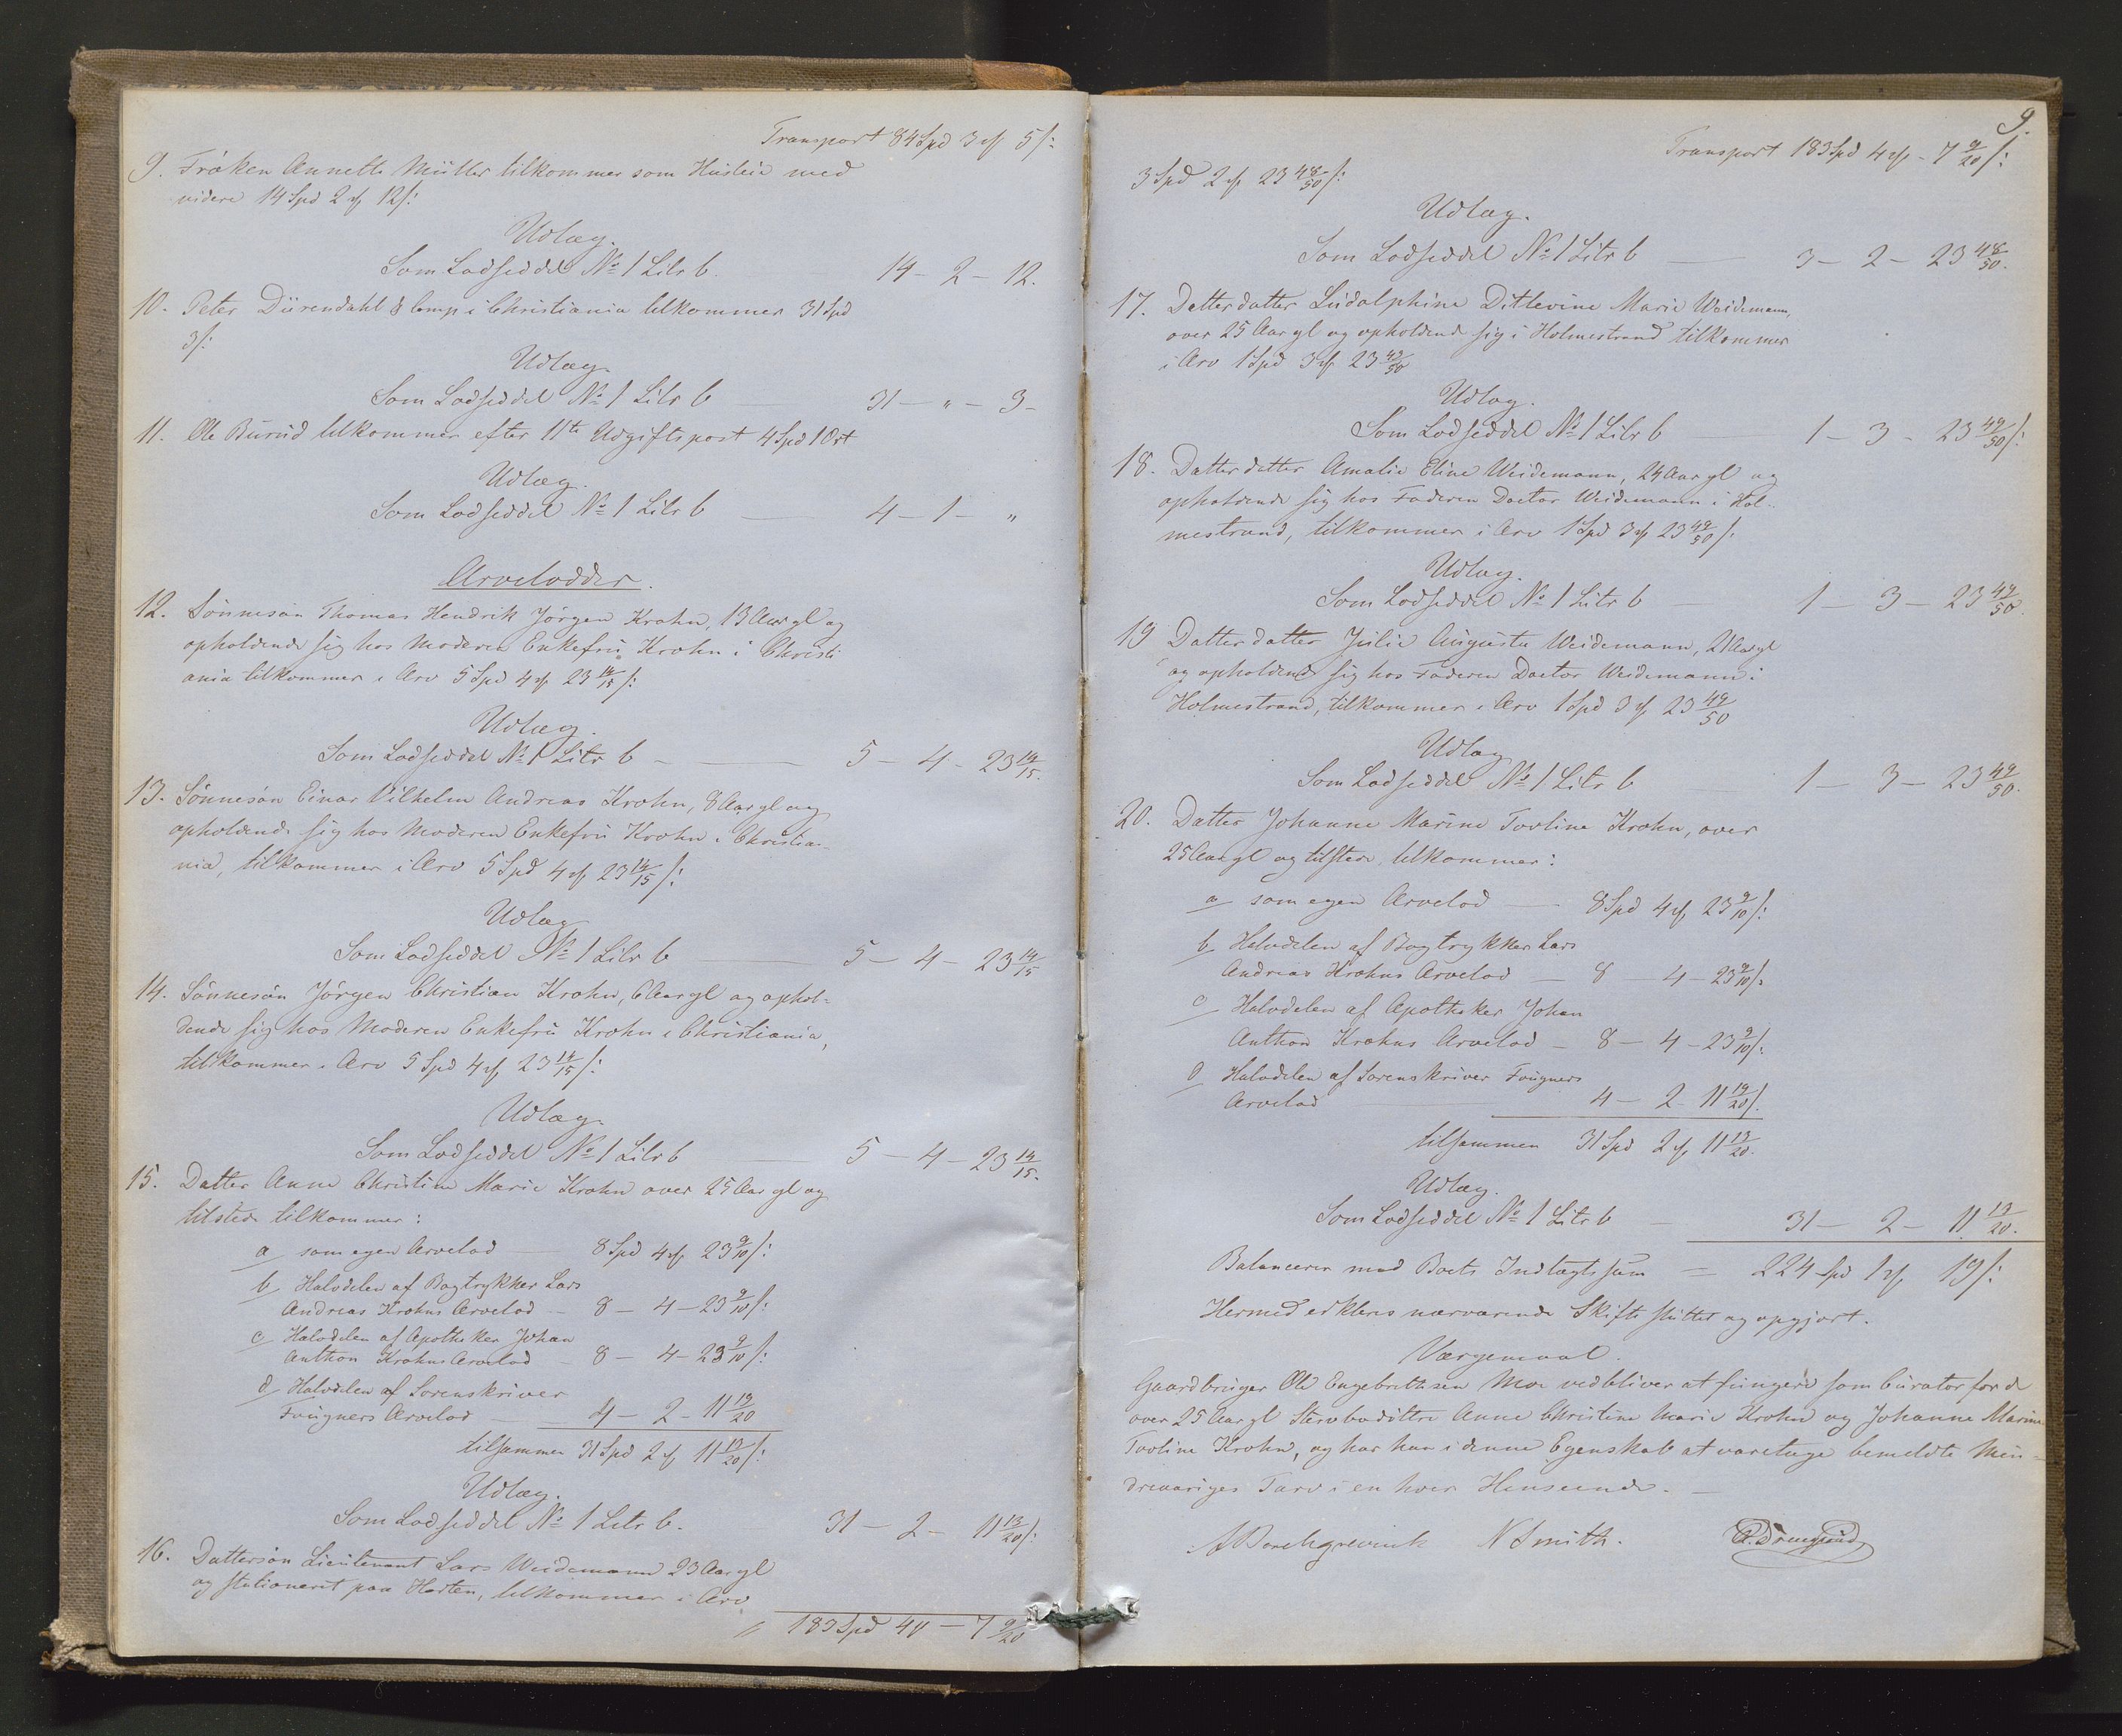 Transport 84 Spd 3 ₰ 5 /:
9. Fröken Annette Müller tilkommer som Husleie med
videre 14 Spd 2 ₰ 12 /:
Udlæg.
Som Lodseddel No 1 Litr b. 14 – 2 – 12.
10. Peter Dürendahl & Comp i Christiania tilkommer 31 Spd
3 /:
Udlæg.
Som Lodseddel No 1 Litr b — 31 – „ – 3 –
11. Ole Burud tilkommer efter 11te Udgiftspost 4 Spd 1 Ort
Udlæg.
Som Lodseddel No 1 Litr b — 4 – 1 – „
Arvelodder.
12. Sönnesön Thomas Hendrik Jörgen Krohn, 13 Aar gl og
opholdende sig hos Moderen Enkefru Krohn i Christi
ania tilkommer i Arv 5 Spd 4 ₰ 23 14/15 /:
Udlæg.
Som Lodseddel No 1 Litr b – — 5 – 4 – 23 14/15.
13. Sönnesön Einar Vilhelm Andreas Krohn, 8 Aar gl og
opholdende sig hos Moderen Enkefru Krohn i Christia-
nia, tilkommer i Arv 5 Spd 4 ₰ 23 14/15 /:
Udlæg
Som Lodseddel No 1 Litr b — 5 – 4 – 23 14/15
14. Sönnesön Jörgen Christian Krohn, 6 Aar gl og ophol-
dende sig hos Moderen Enkefru Krohn i Christiania,
tilkommer i Arv 5 Spd 4 ₰ 23 14/15 /:
Udlæg.
Som Lodseddel No 1 Litr b — 5 – 4 – 23 14/15.
15. Datter Anne Christine Marie Krohn over 25 Aar gl og
tilstede tilkommer:
a/ som egen Arvelod — 8 Spd 4 ₰ 23 9/10 /:
b/ Halvdelen af Bogtrykker Lars
Andreas Krohns Arvelod – 8 – 4 – 23 9/10 /:
c/ Halvdelen af Apotheker Johan
Anthon Krohns Arvelod – 8 – 4 – 23 9/10 /:
d/ Halvdelen af Sorenskriver
Fougners Arvelod — 4 – 2 – 11 19/20
tilsammen 31 Spd 2 ₰ 11 13/20 /:
Udlæg.
Som Lodseddel No 1 Litr b. 31 – 2 – 11 13/20 /:
16. Dattersön Lieutenant Lars Weidemann 23 Aar gl
og stationeret paa Horten, tilkommer i Arv
183 Spd 4 ₰ – 7 9/20
9.
Transport 183 Spd 4 ₰ – 7 9/20 /:
3 Spd 2 ₰ 23 48/50 /:
Udlæg.
Som Lodseddel No 1 Litr b — 3 – 2 – 23 48/50.
17. Datterdatter Ludolphine Ditlevine Marie Weidemann,
over 25 Aar gl og opholdende sig i Holmestrand tilkommer
i Arv 1 Spd 3 ₰ 23 49/50
Udlæg.
Som Lodseddel No 1 Litr b — 1 – 3 – 23 49/50 /:
18. Datterdatter Amalie Eline Weidemann, 24 Aar gl og
opholdende sig hos Faderen Doctor Weidemann i Hol-
mestrand, tilkommer i Arv 1 Spd 3 ₰ 23 49/50 /:
Udlæg.
Som Lodseddel No 1 Litr b — 1 – 3 – 23 49/50.
19 Datterdatter Julie Augusta Weidemann, 21 Aar gl
og opholdende sig hos Faderen Doctor Weidemann i
Holmestrand, tilkommer i Arv 1 Spd 3 ₰ 23 49/50
Udlæg
Som Lodseddel No 1 Litr b — 1 – 3 – 23 49/50.
20. Datter Johanne Marine Tovline Krohn, over
25 Aar gl og tilstede tilkommer:
a/ som egen Arvelod — 8 Spd 4 ₰ 23 9/10 /:
b/ Halvdelen af Bogtrykker Lars
Andreas Krohns Arvelod — 8 – 4 – 23 9/10 /:
c/ Halvdelen af Apotheker Johan
Anthon Krohns Arvelod – 8 – 4 – 23 9/10 /:
d/ Halvdelen af Sorenskriver Fougners
Arvelod — 4 – 2 – 11 19/20 /.
tilsammen 31 Spd 2 ₰ 11 13/20.
Udlæg.
Som Lodseddel No 1 Litr b — 31 – 2 – 11 13/20.
Balancerer med Boets Indtægtssum = 224 Spd 1 ₰ 19 /:
Hermed erklæres nærværende Skifte sluttet og opgjort.
Værgemaal.
Gaardbruger Ole Engebrethsen Moe vedbliver at fungere som Curator for de
over 25 Aar gl Stervbodöttre Anne Christine Marie Krohn og Johanne Marine
Tovline Krohn, og har han i denne Egenskab at varetage bemeldte Min-
dreaariges Tarv i en hver Henseende. –
A Borchgrevink N Smith.